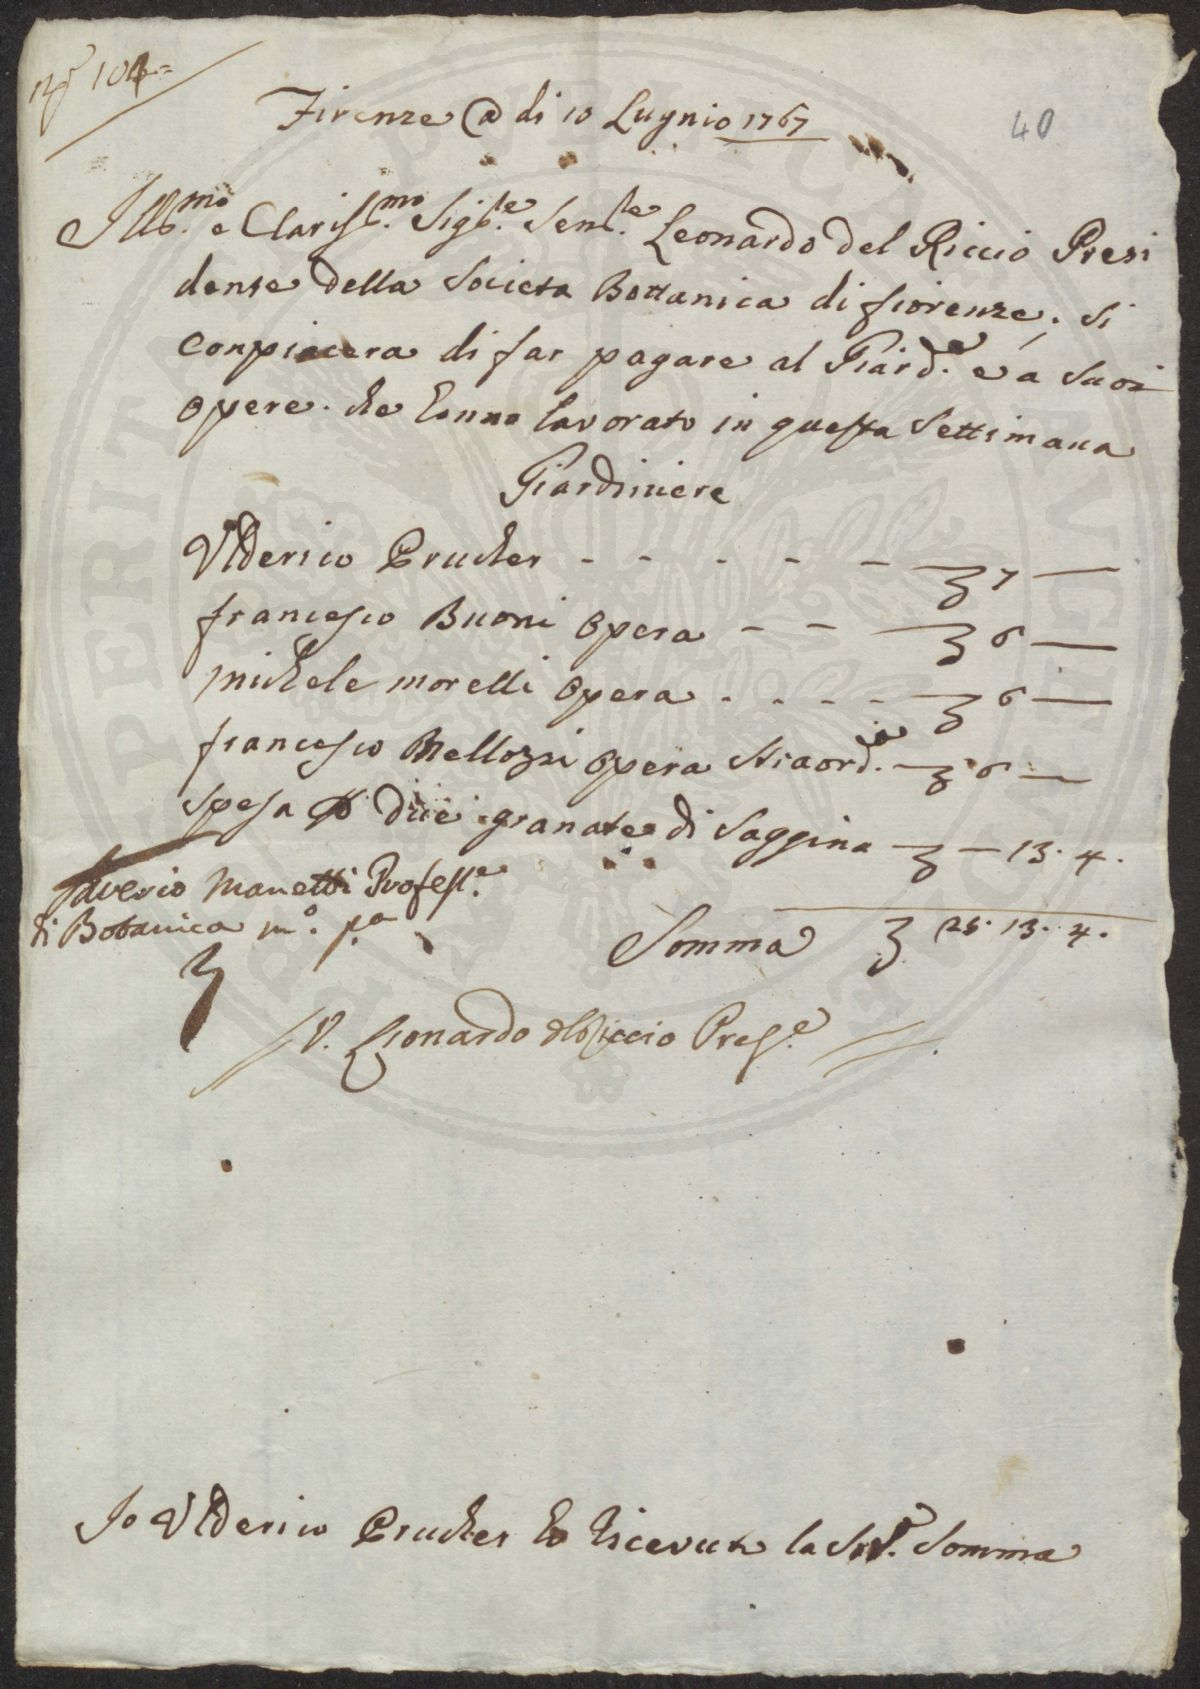 N.º 104=
40
Firenze @ di 10 Lugnio 1767
Ill.mo e Claris.mo Sig.re Sen.re Leonardo del Riccio Presi
dense della Societa Bottanica di fiorenze, si
conpiacera di far pagare al Giard.e e a Suoi
opere. che hanno lavorato in questa Settimana
Giardiniere
Ulderico Prucher - - - - - 7 —
francesco Buoni opera - - - 6 —
michele morelli opera - - - - 6 —
francesco Mellozzi opera straord.ia — 6 —
spesa p due granate di Saggina — — 13. 4.
Saverio Manetti Profess.e
di Botanica m.o p.a
Somma 25. 13. 4.
V. Lionardo del Riccio Pres.e
Io Ulderico Prucher ho ricevuto la Sud.a Somma